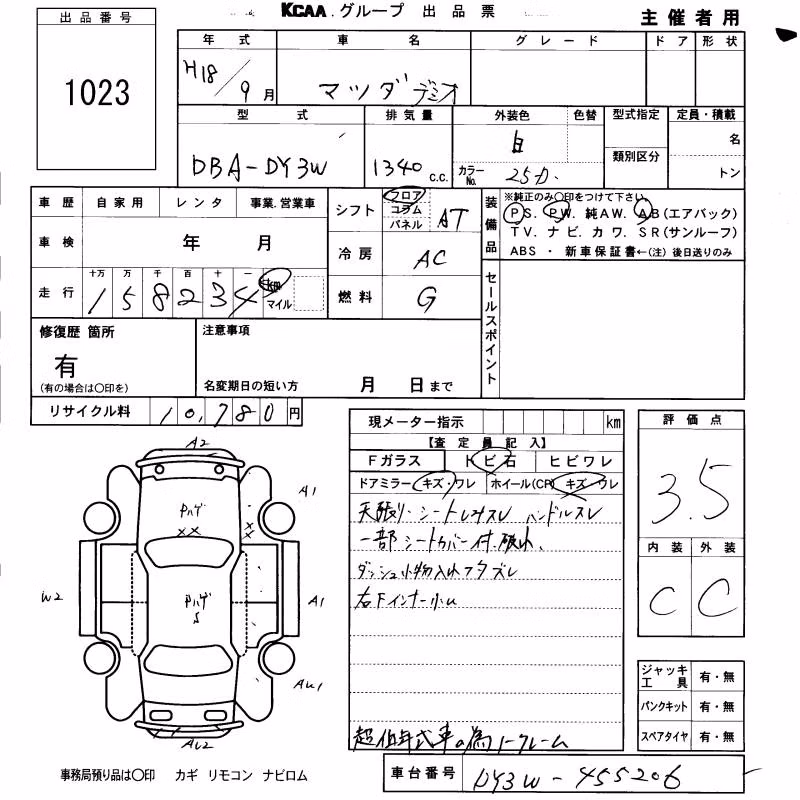 出品番号
1023
KCAA.グループ 出品票
主催者用
年式 車名 グレード ドア 形状
H18/9月 マツダ デミオ
型式 排気量 外装色 色替 型式指定 定員・積載
DBA-DY3W 1340c.c. 白 名
カラーNo. 25D. 類別区分 トン
車歴 自家用 レンタ 事業.営業車
車検 年 月
走行 十万 万 千 百 十 一
158234 km マイル
シフト フロア コラム パネル AT
冷房 AC
燃料 G
装備品
※純正のみ〇印をつけて下さい
PS. PW. 純AW. AB(エアバック)
TV. ナビ. カワ. SR(サンルーフ)
ABS ・ 新車保証書←(注) 後日送りのみ
セールスポイント
修復歴 箇所
有
(有の場合は〇印を)
注意事項
名変期日の短い方 月 日まで
リサイクル料 10,780円
現メーター指示 km
【査定員記入】
Fガラス トビ石 ヒビワレ
ドアミラー キズ・ワレ ホイール(CP) キズ・ワレ
天張り・シートしみスレ ハンドルスレ
一部シートカバー付.破れ、
ダッシュ小物入れフタズレ
右Fインナー小ム
超低年式車の為ノークレーム
評価点
3.5
内装 外装
C C
ジャッキ工具 有・無
パンクキット 有・無
スペアタイヤ 有・無
A2
A1
Pハゲ
XX
W2
Pハゲ
S
A1
AU1
AU2
事務局預り品は〇印 カギ リモコン ナビロム
車台番号 DY3W-455206